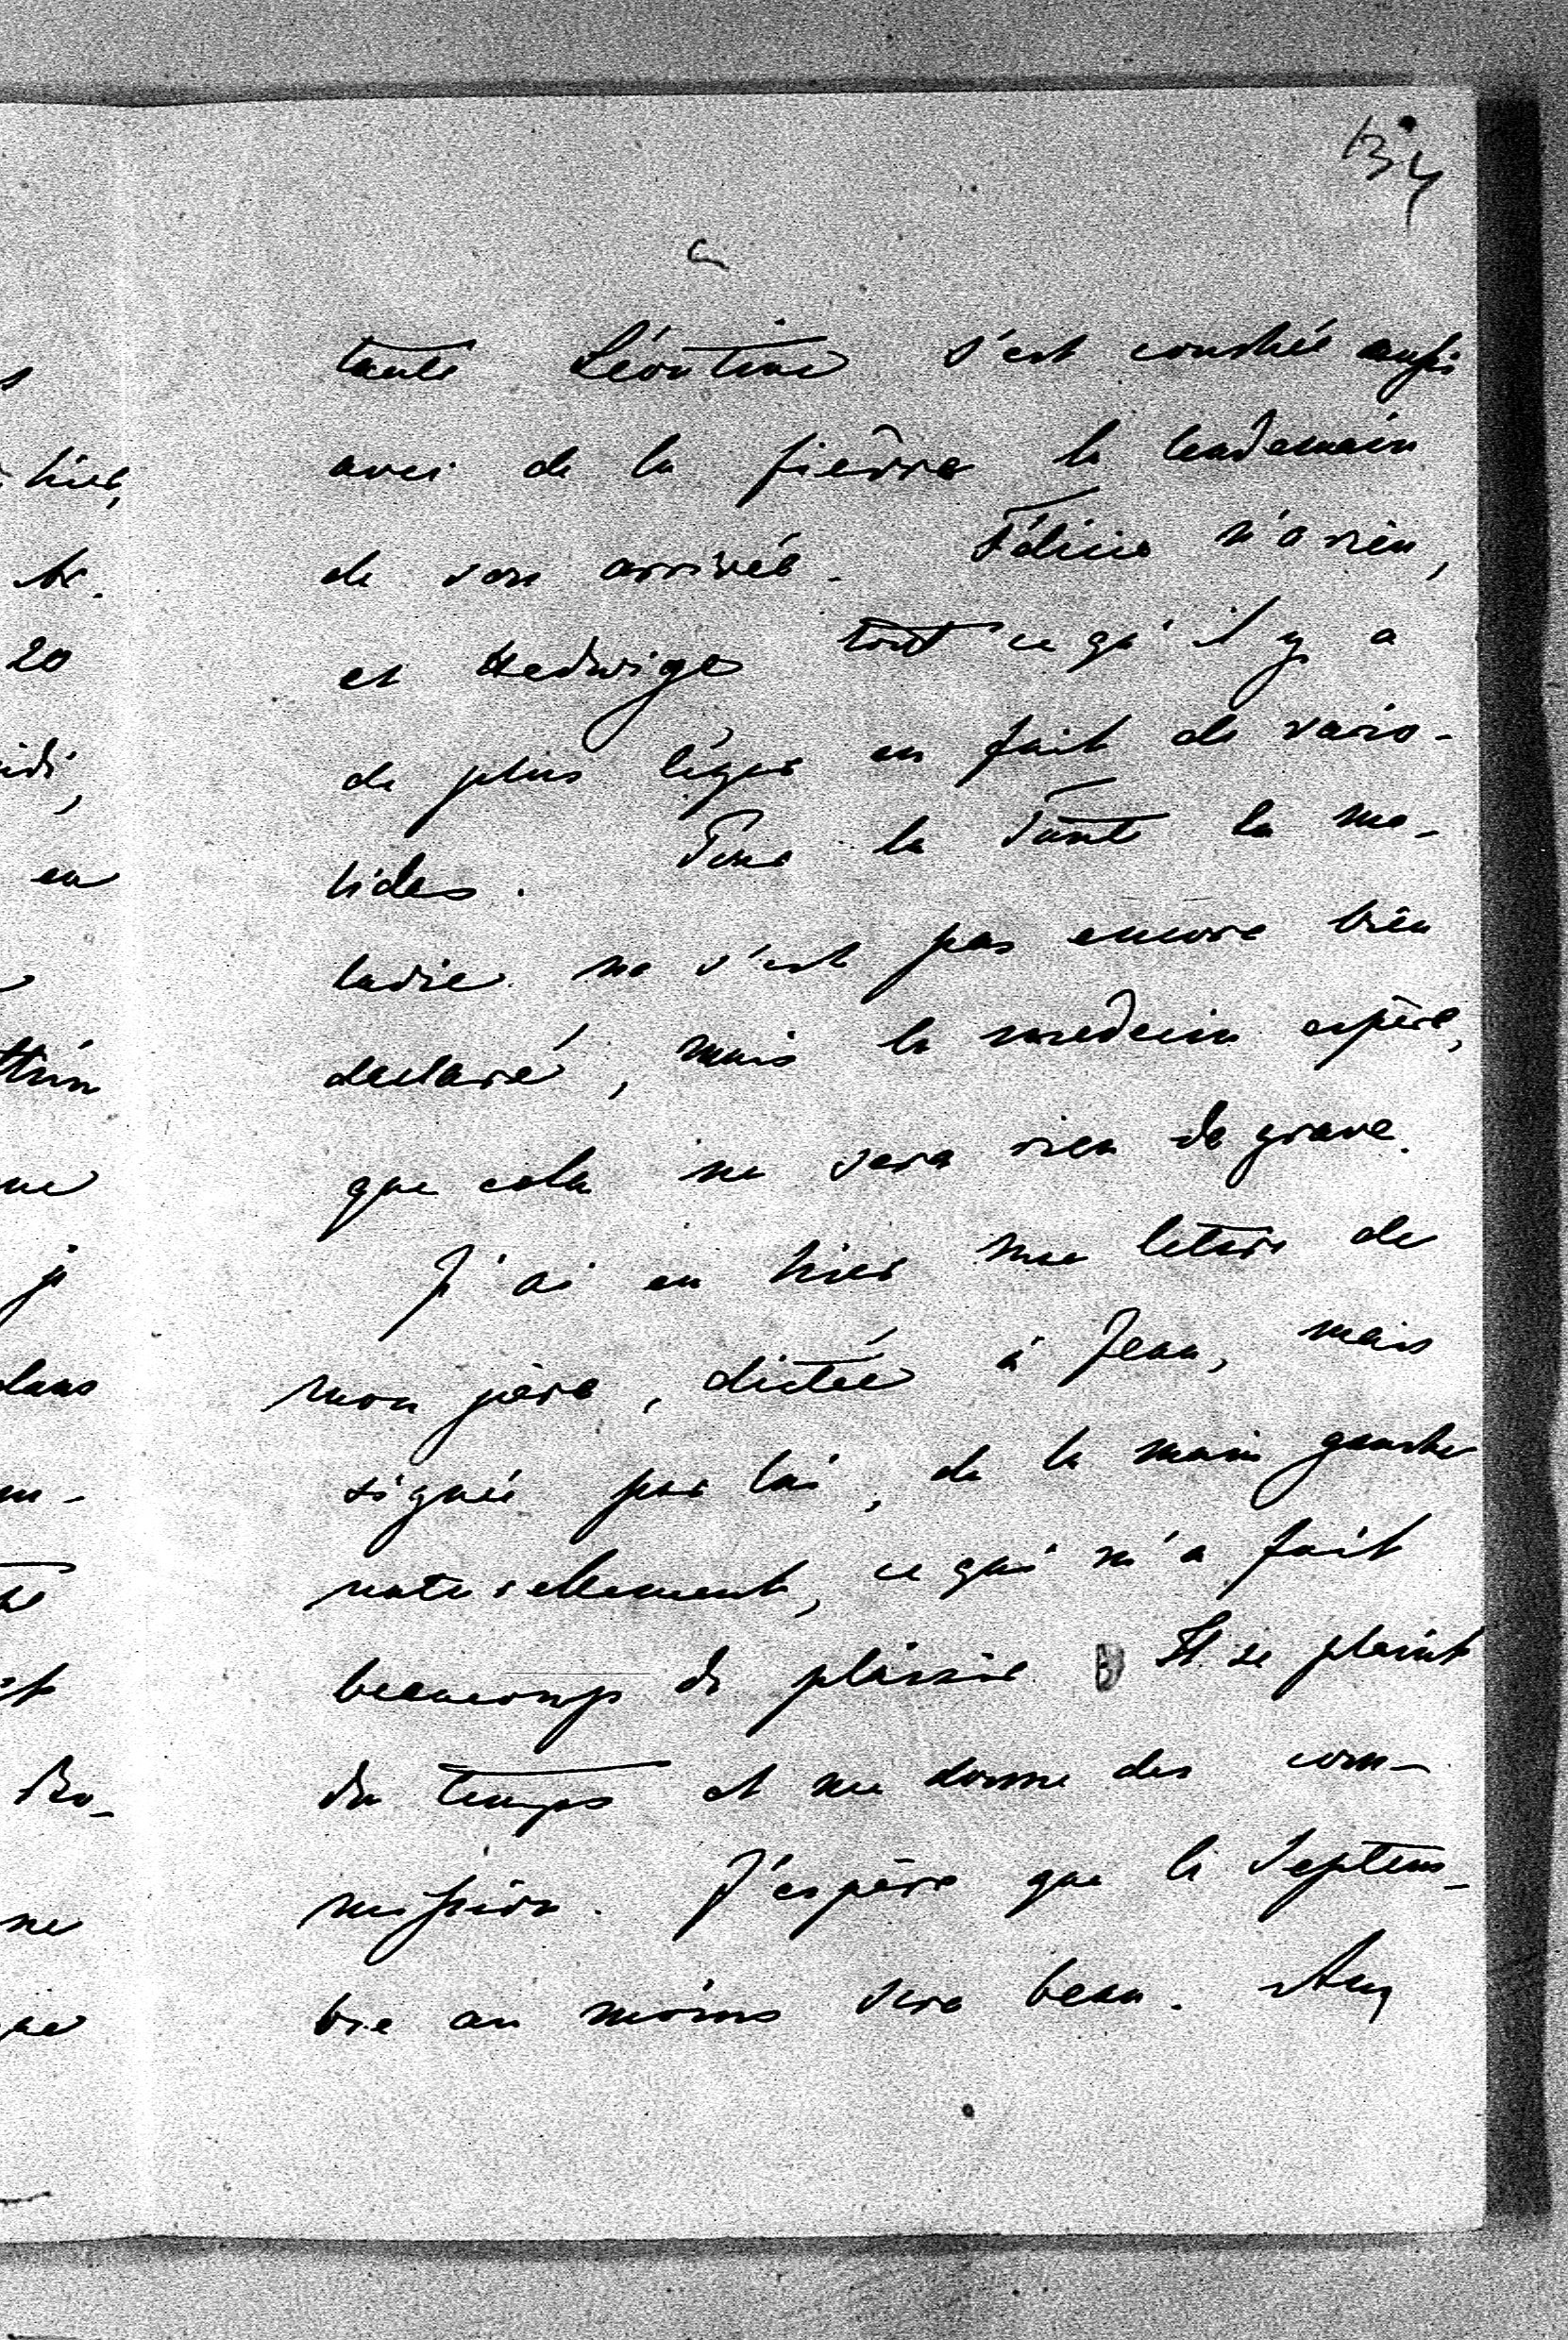 134
tante Léontine s'est couchée aussi
avec de la fièvre le lendemain
de son arrivée. Félicie n'a rien,
et Hedwige tout ce qu'il y a
de plus léger en fait de vario-
lides. Pour la Tante la ma-
ladie ne s'est pas encore bien
declaré, mais le medecin espère,
que cela ne sera rien de grave.
J'ai eu hier une lettre de
mon père, dictée à Jean, mais
signée par lui, de la main gauche
naturellement, ce qui m'a fait
beaucoup de plaisir. Il se plaint
du temps et me donne des com-
mission. J'espère que le Septem-
bre au moins sera beau.
hier,
20
en
je
dans